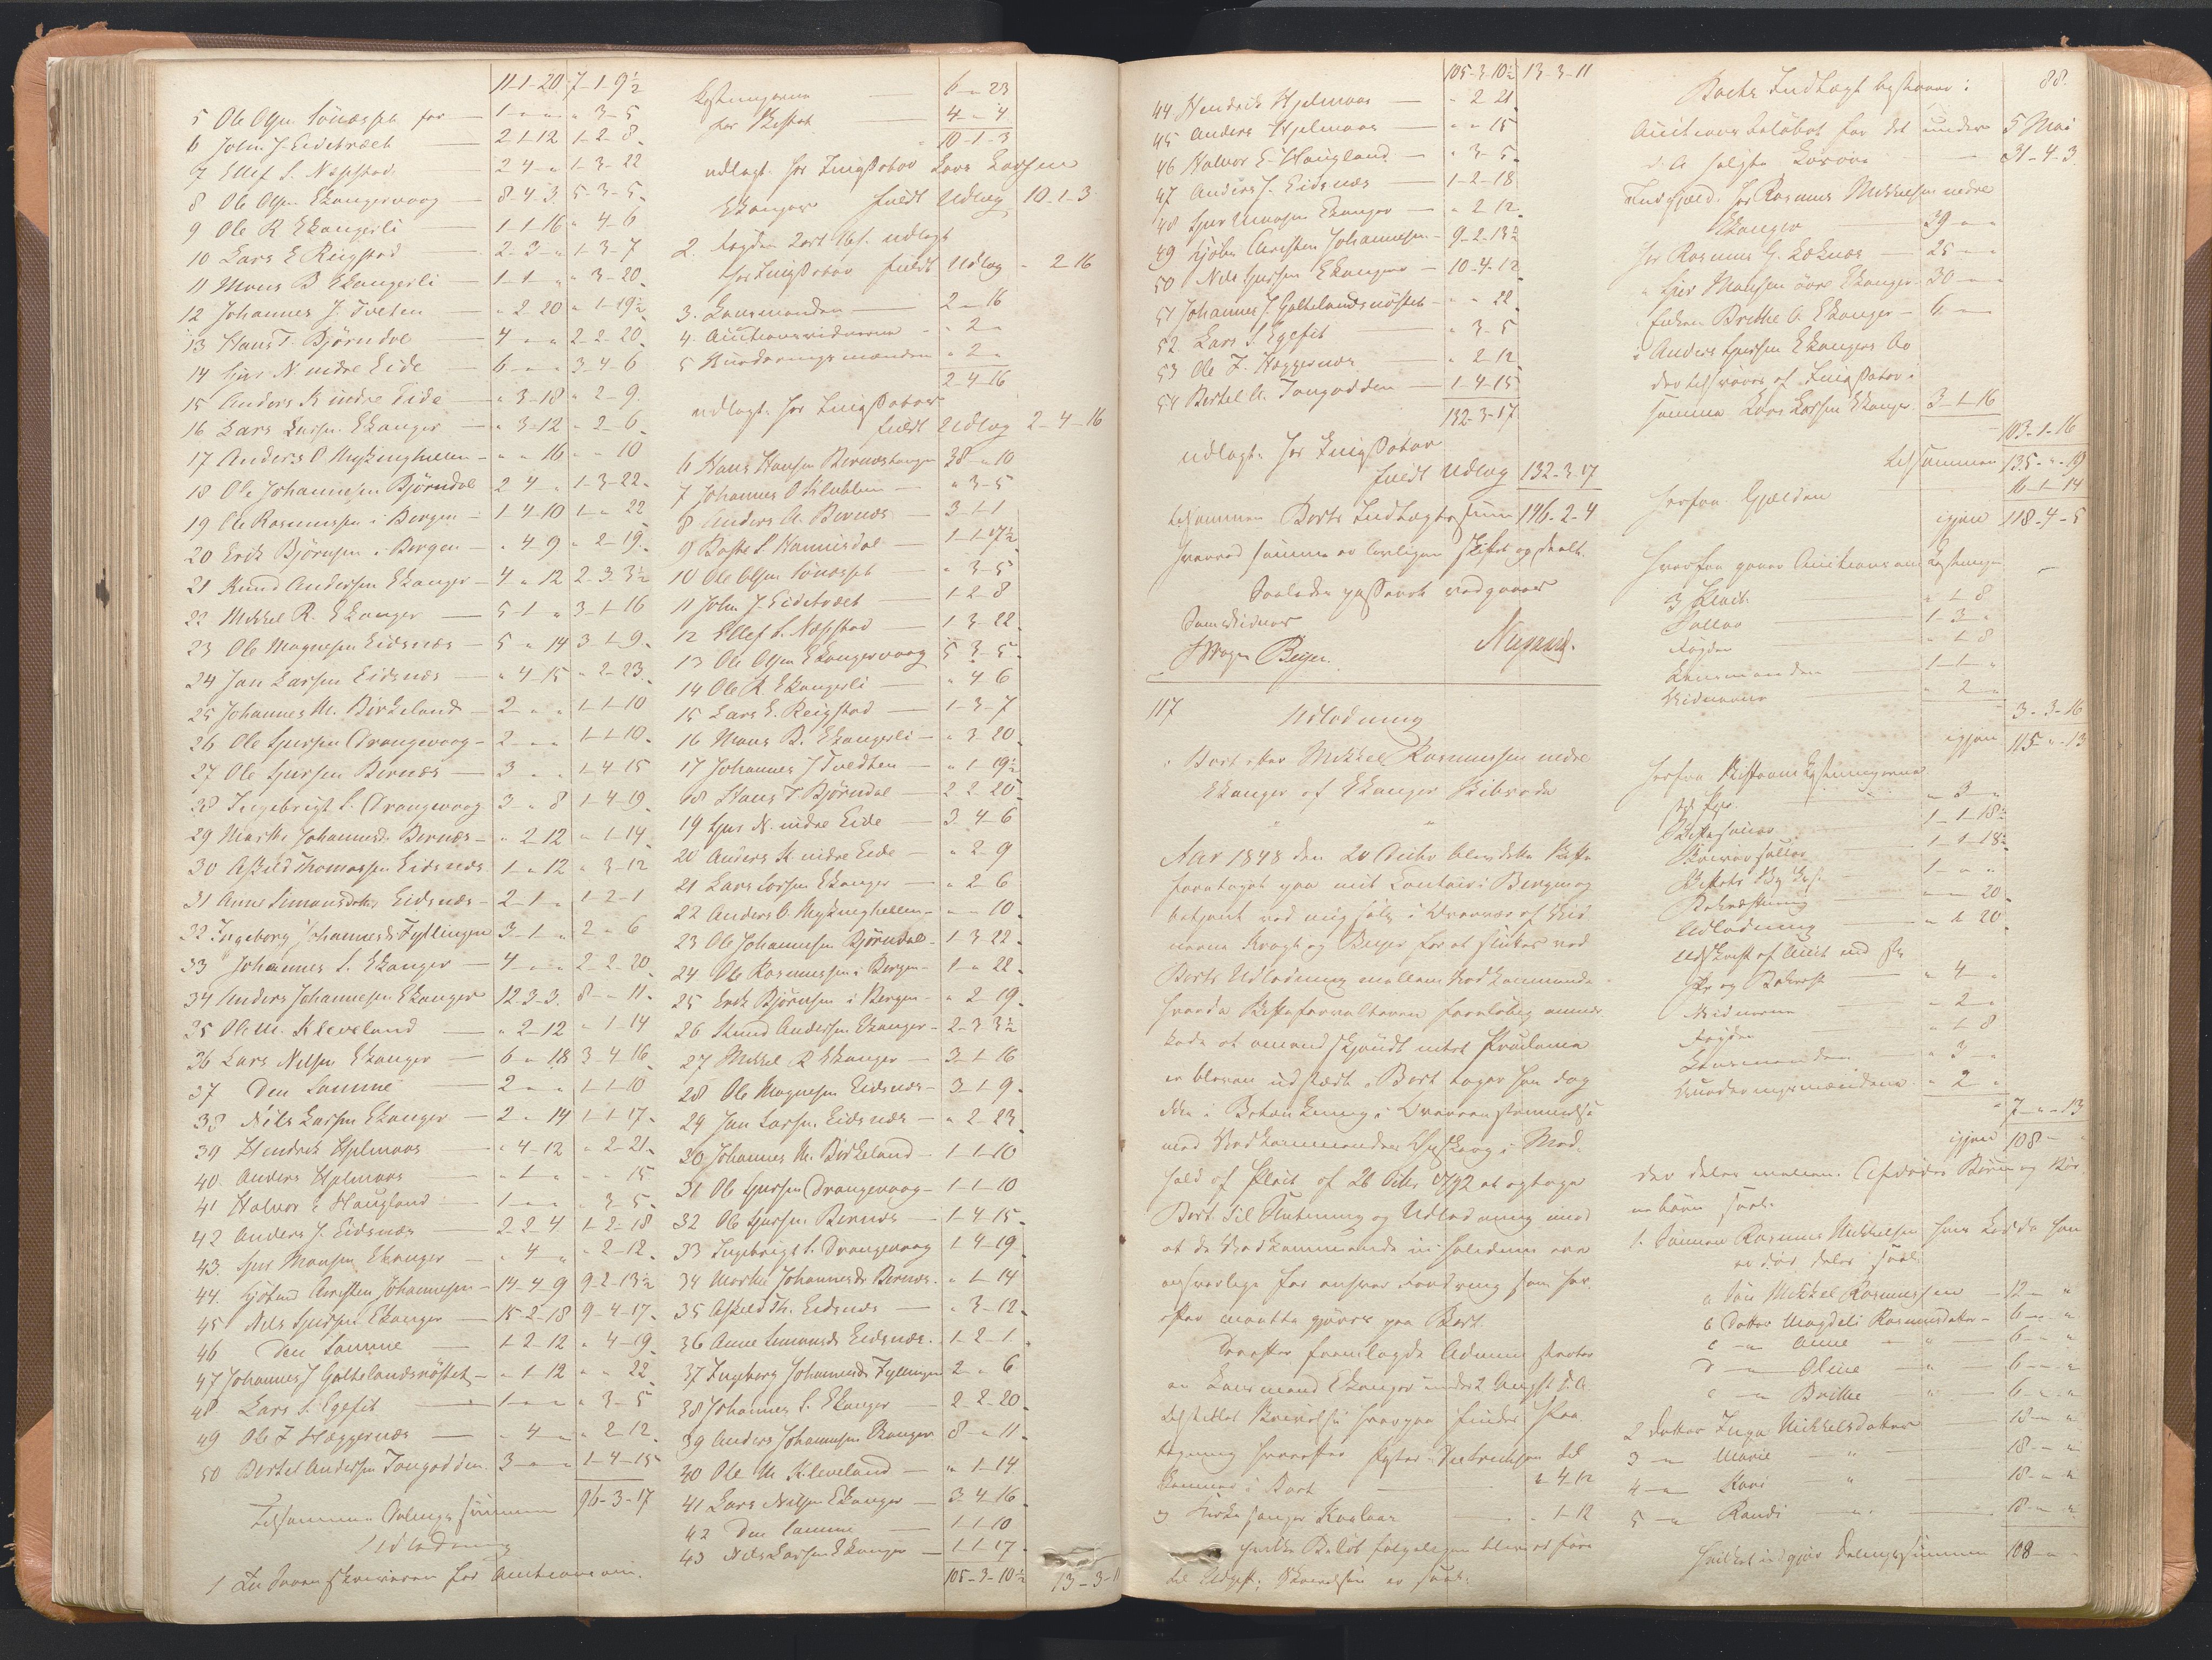 11-1-20 7-1-9½
5 Ole Olsen for 1-"-" "-3-5
6 John J. Eidetræet 2-1-12 1-2-8
7 Ellef S. Næpstad 2-4-" 1-3-22
8 Ole Olsen Ekangervaag 8-4-3 5-3-5
9 Ole R Ekangerli 1-1-16 "-4-6
10 Lars E Reigstad 2-3-" 1-3-7
11 Mons B Ekangerli 1-1-" "-3-20
12 Johannes J. Tveten "-2-20 "-1-19½
13 Hans T. Bjørndal 4-"-" 2-2-20
14 Gjert N. indre Eide 6-"-" 3-4-6
15 Anders K indre Eide "-3-18 "-2-9
16 Lars Larsen Ekanger "-3-12 "-2-6
17 Anders O Myking "-"-16 "-"-10
18 Ole Johannesen Bjørndal 2-4-" 1-3-22
19 Ole Rasmussen i Bergen 1-4-10 1-"-22
20 Erik Bjørnsen i Bergen "-4-9 "-2-19
21 Knud Andersen Ekanger 4-"-12 2-3-3½
22 Mikkel R. Ekanger 5-1-" 3-1-16
23 Ole Magnesen Eidsnæs 5-"-14 3-1-9
24 Jan Larsen Eidsnæs "-4-15 "-2-23
25 Johannes M. Birkeland 2-"-" 1-1-10
26 Ole Gjersen Drangevaag 2-"-" 1-1-10
27 Ole Gjersen Bernæs 3-"-" 1-4-15
28 Ingebrigt S. Drangevaag 3-"-8 1-4-19
29 Marthe Johannesdr Bernæs "-2-12 "-1-14
30 Askild Thomassen Eidsnæs 1-"-12 "-3-12
31 Anne Simonsdtr Eidsnæs 2-1-" 1-2-1
32 Ingeborg Johannesdr Fyllingen 3-1-" 2-"-6
33 Johannes S. Ekanger 4-"-" 2-2-20
34 Anders Johannesen Ekanger 12-3-3 8-"-11
35 Ole M. Kleveland "-2-12 "-1-14
36 Lars Nilsen Ekanger 6-"-18 3-4-16
37 Den Samme 2-"-" 1-1-10
38 Nils Larsen Ekanger 2-"-14 1-1-17
39 Hendrik Hjelmaas "-4-12 "-2-21
40 Anders Hjelmaas "-1-" "-"-15
41 Halvor E Haugland 1-"-" "-3-5
42 Anders J. Eidsnæs 2-2-4 1-2-18
43 Gjert Monsen Ekanger "-4-" "-2-12
44 Christen Johannesen 14-4-9 9-2-13½
45 Nils Gjersen Ekanger 15-2-18 9-4-17
46 Den Samme 1-2-12 "-4-19
47 Johannes J Galtelandsnøstet "-1-12 "-"-22
48 Lars S. Egesit 1-"-" "-3-5
49 Ole J. Hæggernæs "-4-" "-2-12
50 Bertel Andersen Tangodden 3-"-" 1-4-15
Tilsammen Delings summen 96-3-17
Udlodning
1 for Auctionsom.
6-"-23
for Skiftet 4-"-4
10-1-3
udlagt hos Lars Larsen
Ekanger fuldt Udlæg 10-1-3
2. Fogden udlagt
fuldt Udlæg "-2-16
3. Lensmanden 2-"-16
4. Auctionsvidnerne "-2-"
5 Vurderingsmænden "-2-"
2-4-16
udlagt hos
fuldt Udlæg 2-4-16
6 Hans Hansen Bernæstangen 38-"-10
7 Johannes O Klubben "-3-5
8 Anders A. Bernæs 3-1-1
9 S. Hannisdal 1-1-17½
10 Ole Olsen "-3-5
11 John J. Eidetræet 1-2-8
12 Ellef S. Næpstad 1-3-22
13 Ole Olsen Ekangervaag 5-3-5
14 Ole R. Ekangerli "-4-6
15 Lars E. Reigstad 1-3-7
16 Mons B. Ekangerli "-3-20
17 Johannes J Tvedten "-1-19½
18 Hans T Bjørndal 2-2-20
19 Gjert N. indre Eide 3-4-6
20 Anders K indre Eide "-2-9
21 Lars Larsen Ekanger "-2-6
22 Anders O. Myking "-"-10
23 Ole Johannesen Bjørndal 1-3-22
24 Ole Rasmussen i Bergen 1-"-22
25 Erik Bjørnsen i Bergen "-2-19
26 Knud Andersen Ekanger 2-3-3½
27 Mikkel R Ekanger 3-1-16
28 Ole Magnesen Eidsnæs 3-1-9
29 Jan Larsen Eidsnæs "-2-23
30 Johannes M. Birkeland 1-1-10
31 Ole Gjersen Drangevaag 1-1-10
32 Ole Gjersen Bernæs 1-4-15
33 Ingebrigt S. Drangevaag 1-4-19
34 Marthe Johannesdr Bernæs "-1-14
35 Askild Th. Eidsnæs "-3-12
36 Anne Simonsdr Eidsnæs 1-2-1
37 Ingeborg Johannesdr Fyllingen 2-"-6
38 Johannes S. Ekanger 2-2-20
39 Anders Johannesen Ekanger 8-"-11
40 Ole M Kleveland "-1-14
41 Lars Nilsen Ekanger 3-4-16
42 Den Samme 1-1-10
43 Nils Larsen Ekanger 1-1-17
105-3-10½ 13-3-11
105-3-10½ 13-3-11
44 Hendrik Hjelmaas "-2-21
45 Anders Hjelmaas "-"-15
46 Halvor E. Haugland "-3-5
47 Anders J. Eidsnæs 1-2-18
48 Gjert Monsen Ekanger "-2-12
49 Christen Johannesen 9-2-13½
50 Nils Gjersen Ekanger 10-4-12
51 Johannes J. Galtelandsnøstet "-"-22
52 Lars S. Egesit "-3-5
53 Ole J. Hæggernæs "-2-12
54 Bertel A. Tangodden 1-4-15
132-3-17
udlagt hos
fuldt Udlæg 132-3-17
tilsammen Boets Indtægtssum 146-2-4
hvorved samme er lovligen skiftet og deelt.
Saaledes passeret vedgaaer
Beyer. Nygaard.
117
Udlodning
i Boet efter Mikkel Rasmussen nedre
Ekanger af Ekanger Skibrede
Aar 1848 den 20 Octbr blev dette Skifte
foretaget paa mit Contoir i Bergen og
betjent ved mig selv i Overvær af Vid
nerne Kragh og Beyer for at sluttes ved
Boets Udlodning mellem Vedkommende
hvorda Skifteforvalteren foreløbig anmær
kede at omendskjøndt intet Proclama
er bleven udstædt i Boet tages han dog
ikke i Betænkning i Overensstemmelse
med Vedkommendes Ønske og i Med
hold af Plcit af 26 Octbr 1792 at optage
Boet til Slutning og Udlodning imod
at de Vedkommende in solidum ere
ansvarlige for enhver Fordring som her
efter maatte gjøres paa Boet
Derefter fremlagde
en Lensmand Ekanger under 2 August d. A.
tegning hvorefter til
kommer i Boet 2-4-12
og Kirkesanger "-1-12
hvilke Beløb følgeligen blive at føre
til Udgift; er saal.
88.
Boets Indtægt bestaaer i
Auctions beløbet for det under 5 Mai
d. A solgte Løsøre 31-4-3
Indgjæld. hos Rasmus Mikkelsen nedre
Ekanger 39-"-"
hos Rasmus G. 25-"-"
" Gjert Monsen øvre Ekanger 30-"-"
Enken Brithe A. Ekanger 6-"-"
i Anders Gjersen Ekangers Bo
samme Lars Larsen Ekanger 3-1-16
103-1-16
tilsammen 135-"-19
herfra Gjælden 16-1-14
igjen 118-4-5
hvorfra gaaer Auctionsomkostninger
"-1-8
1-3-"
Fogden "-1-8
Lensmanden 1-1-"
Vidnerne "-2-"
3-3-16
igjen 115-"-13
herfra Skifteomkostningerne
"-3-"
1-1-18½
Skriversallær 1-1-18½
1-"-"
Bekræftning "-"-20
Udlodning "-1-20
Udskrift af Auct
"-4-"
Vidnerne "-2-"
Fogden "-1-8
Lensmanden "-3-"
Vurderingsmændene "-2-"
7-"-13
igjen 108-"
der deles mellem Afdødes Børn og Bør
nebørn saal.
1. Sønnen Rasmus Mikkelsen hvis Lod da han
er død deles saal.
a Søn Mikkel Rasmussen 12-"-"
b Datter Magdeli Rasmusdatter 6-"-"
c -"- Anne " 6-"-"
d -"- Oline " 6-"-"
e -"- Brithe " 6-"-"
2 Datter Inga Mikkelsdatter 18-"-"
3 -"- Marie " 18-"-"
4 -"- Kari " 18-"-"
5 -"- Randi " 18-"-"
hvilket udgjør Delingssummen 108-"-"